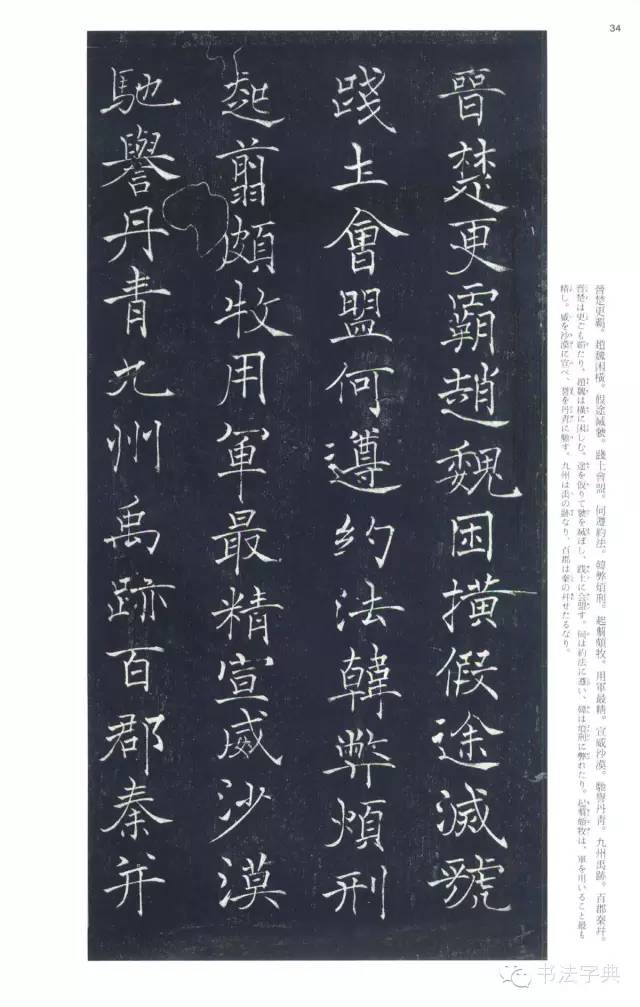 34
晉楚更霸趙魏困橫假途滅虢
踐土會盟何遵約法韓弊煩刑
起翦頗牧用軍最精宣威沙漠
馳譽丹青九州禹跡百郡秦并
晉楚更霸。趙魏困橫。假途滅虢。踐土會盟。何遵約法。韓弊煩刑。起翦頗牧。用軍最精。宣威沙漠。馳譽丹靑。九州禹跡。百郡秦幷。
晉楚は更ごも霸たり、趙魏は橫に困しむ。途を假りて虢を滅ぼし、踐土に会盟す。何は約法に遵い、韓は煩刑に弊れたり。起翦頗牧は、軍を用いること最も
精し。威を沙漠に宣べ、譽を丹靑に馳す。九州は禹の跡なり、百郡は秦の幷せたるなり。
书法字典